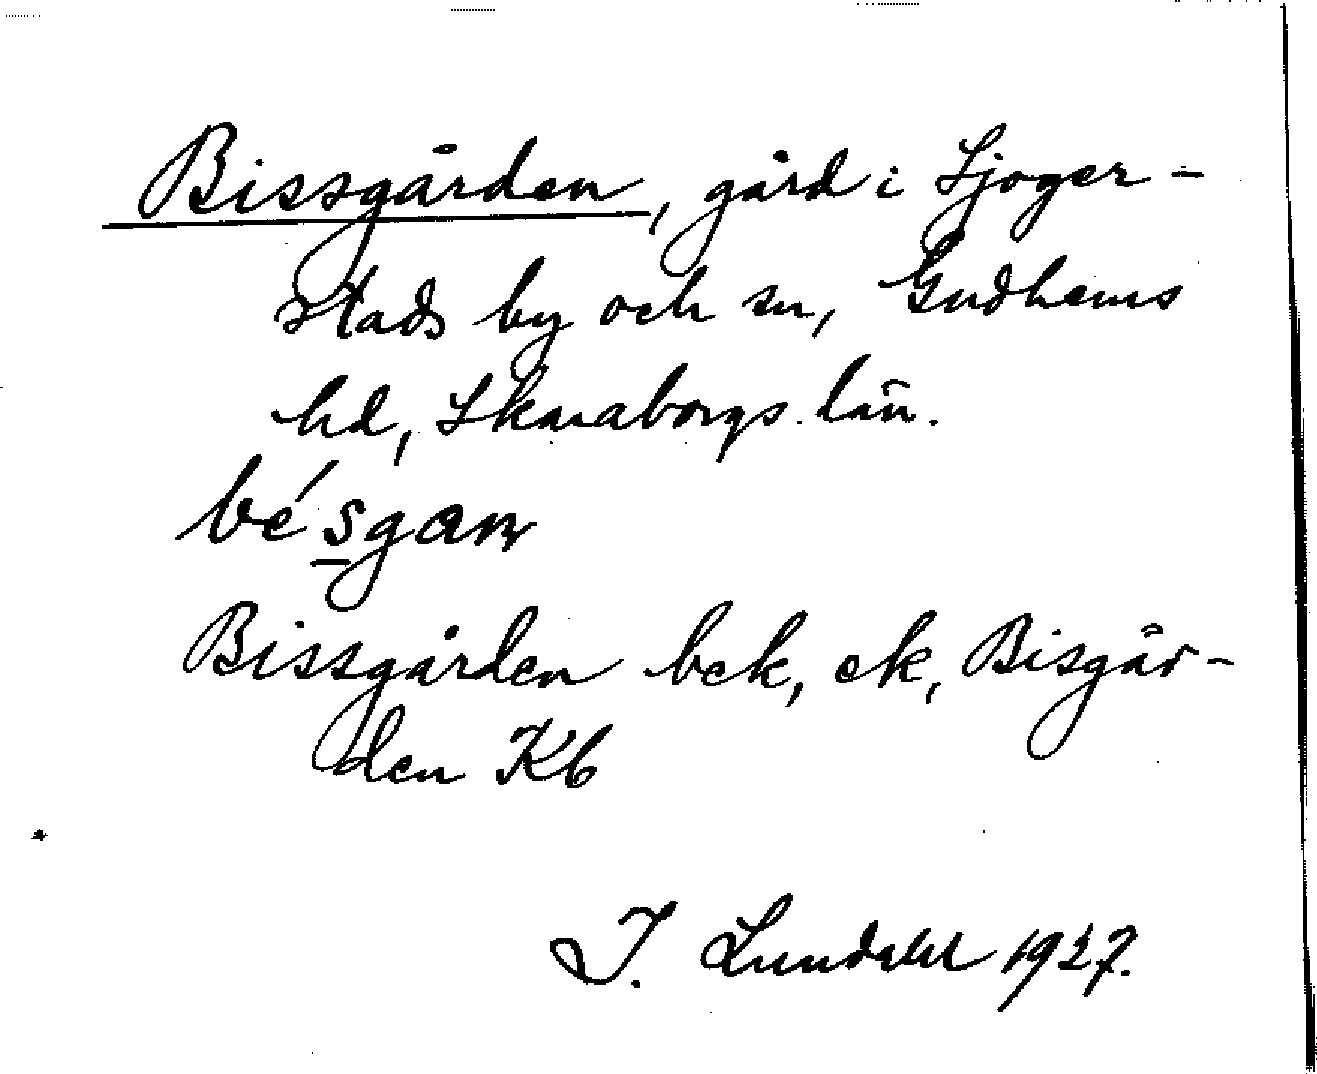 Bissgården, gård i Sjoger-
stads by och sn, Gudhems
hd, Skaraborgs län.
bé́sgan
Bissgården bek, ek, Bisgår-
den Kb
I. Lundahl 1927.